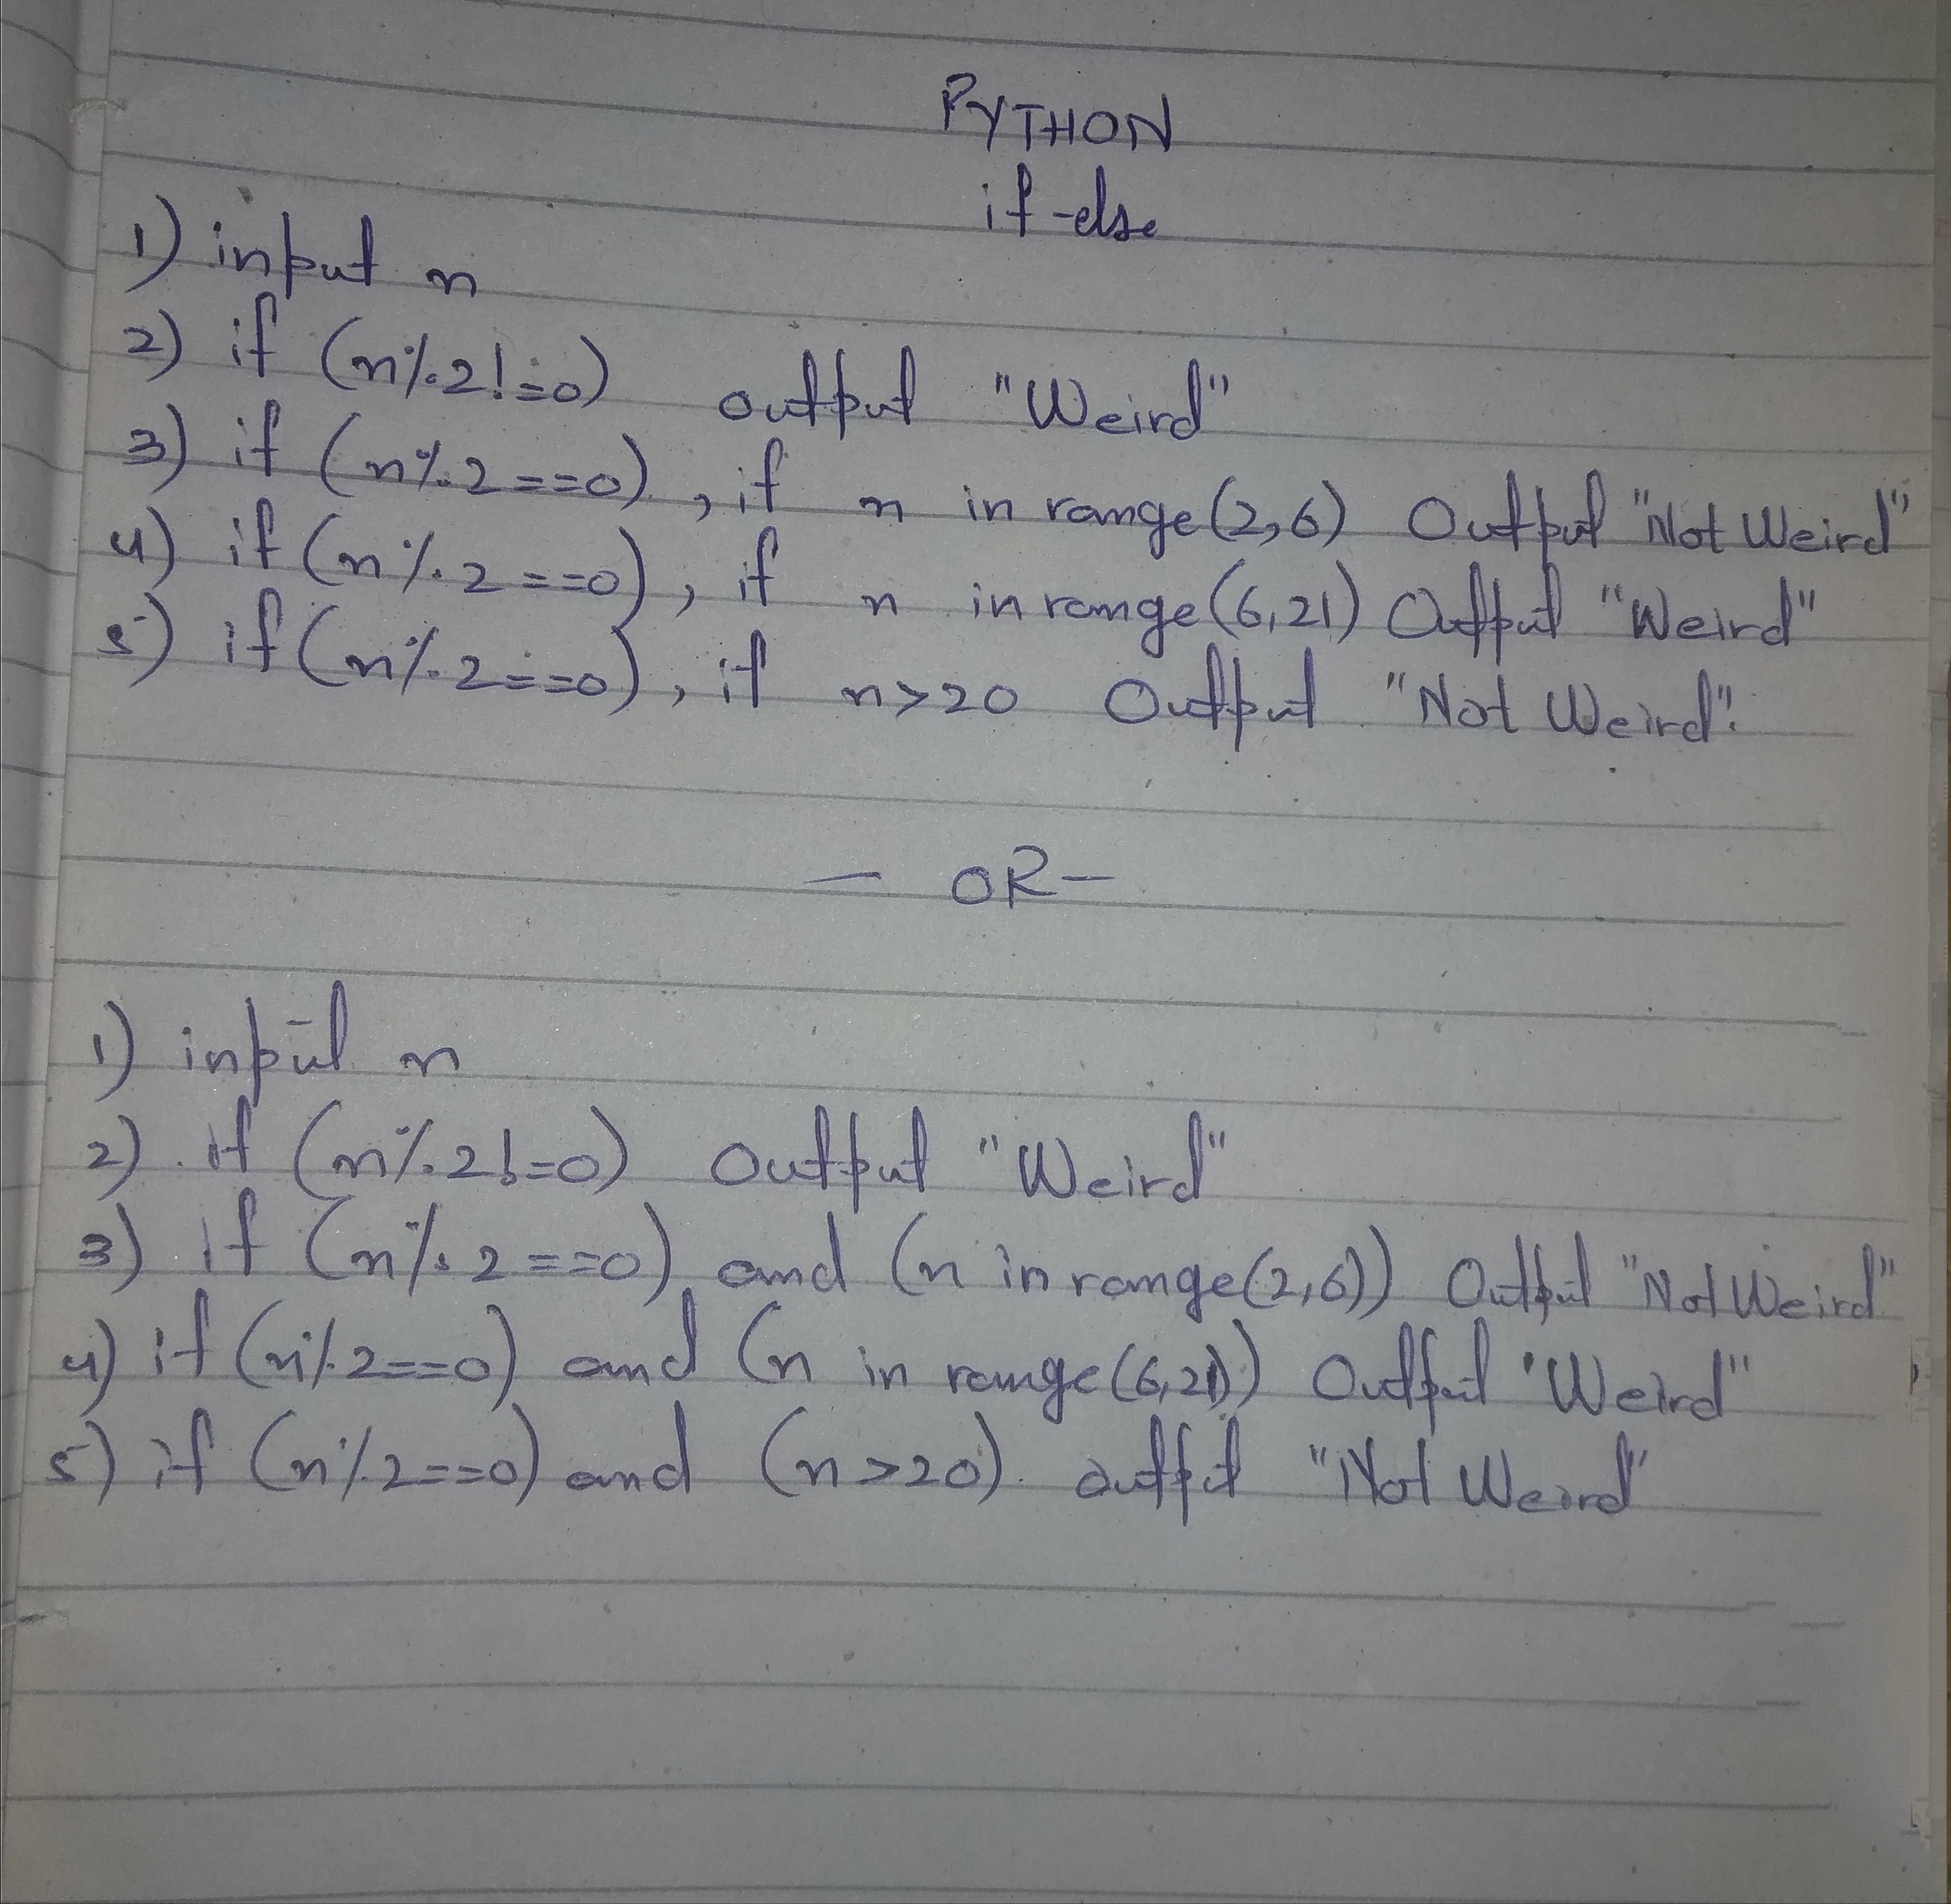 PYTHON
if-else
1) input n
2) if (n%2!=0) output "Weird"
3) if (n%2==0), if n in range(2,6) Output "Not Weird"
4) if (n%2==0), if n in range(6,21) Output "Weird"
5) if (n%2==0), if n>20 Output "Not Weird".
- OR -
1) input n
2) if (n%2!=0) Output "Weird"
3) if (n%2==0) and (n in range(2,6)) Output "Not Weird"
4) if (n%2==0) and (n in range(6,21)) Output "Weird"
5) if (n%2==0) and (n>20). output "Not Weird"